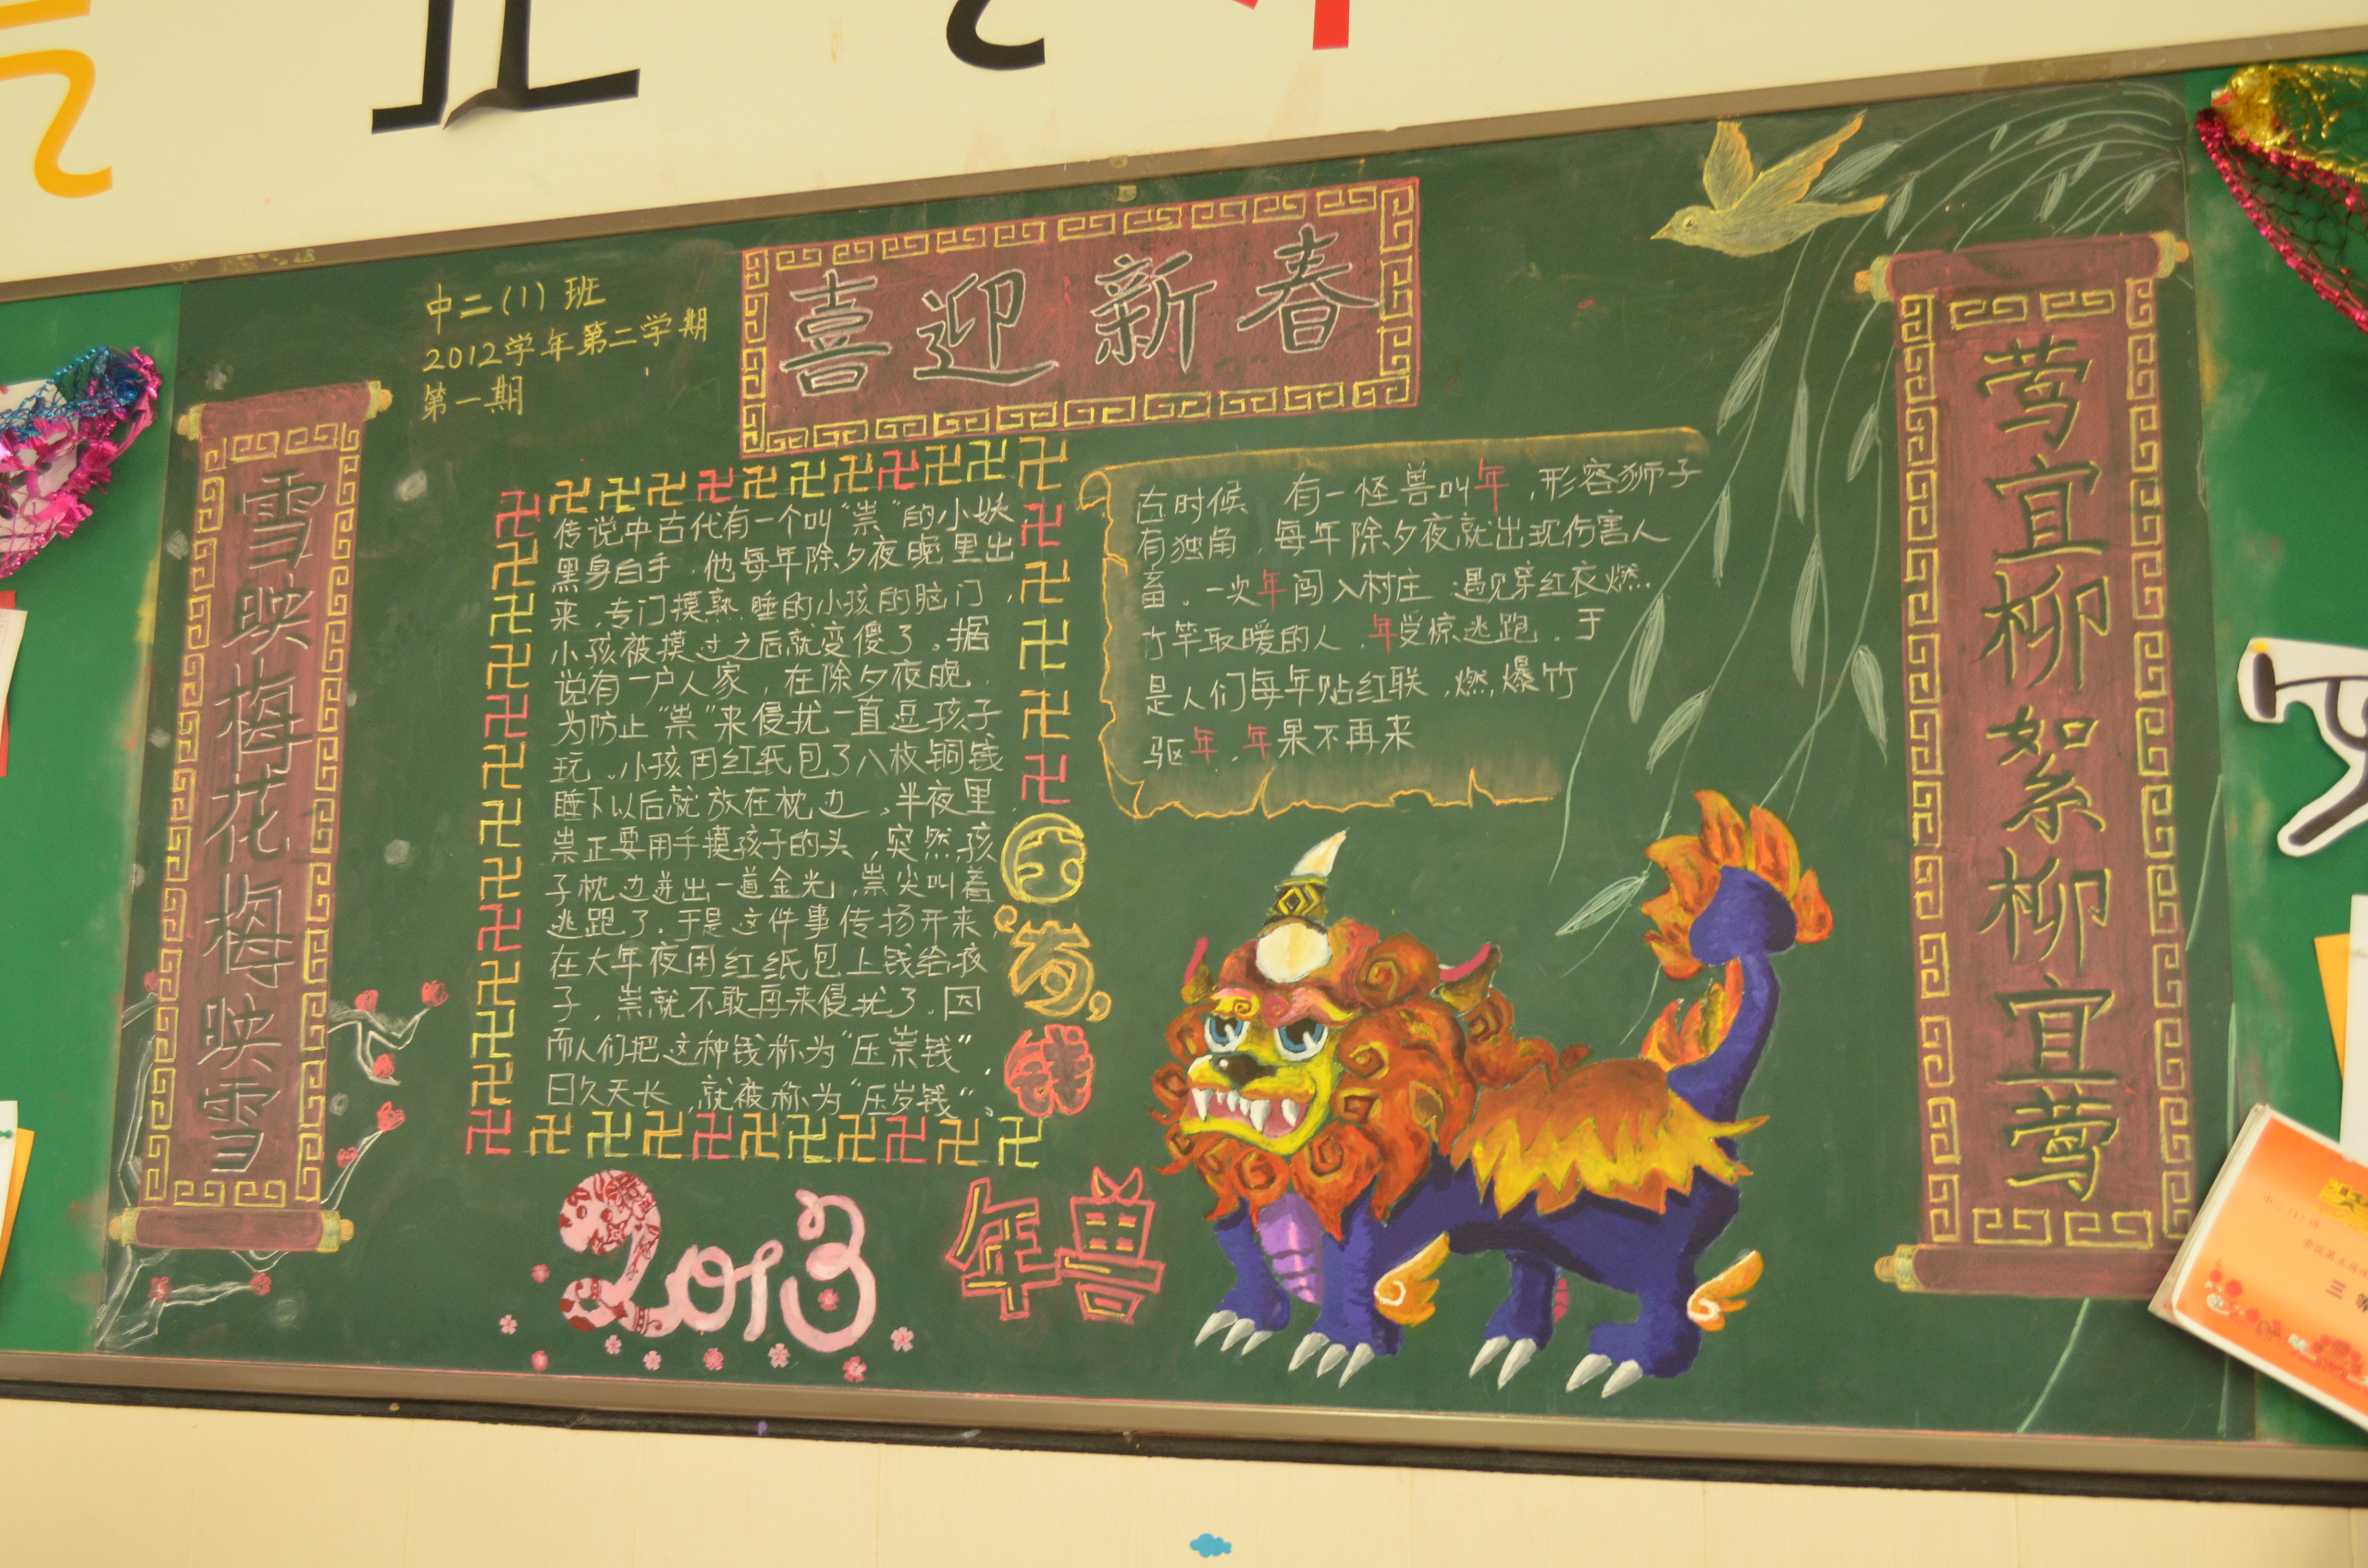 喜迎新春
中二(1)班
2012学年第二学期
第一期
雪映梅花梅映雪
莺宜柳絮柳宜莺
传说中古代有一个叫“祟”的小妖,
黑身白手,他每年除夕夜晚里出
来,专门摸熟睡的小孩的脑门,
小孩被摸过之后就变傻了。据
说有一户人家,在除夕夜晚,
为防止“祟”来侵扰一直逗孩子
玩,小孩用红纸包了八枚铜钱
睡下以后就放在枕边,半夜里,
祟正要用手摸孩子的头,突然,孩
子枕边迸出一道金光,祟尖叫着
逃跑了。于是这件事传扬开来,
在大年夜用红纸包上钱给孩
子,祟就不敢再来侵扰了。因
而人们把这种钱称为“压祟钱”,
日久天长,就被称为“压岁钱”。
压岁钱
古时候 有一怪兽叫年,形容狮子
有独角,每年除夕夜就出现伤害人
畜。一次年闯入村庄 遇见穿红衣燃
竹竿取暖的人,年受惊逃跑,于
是人们每年贴红联,燃爆竹
驱年,年果不再来
2013
年兽
三等